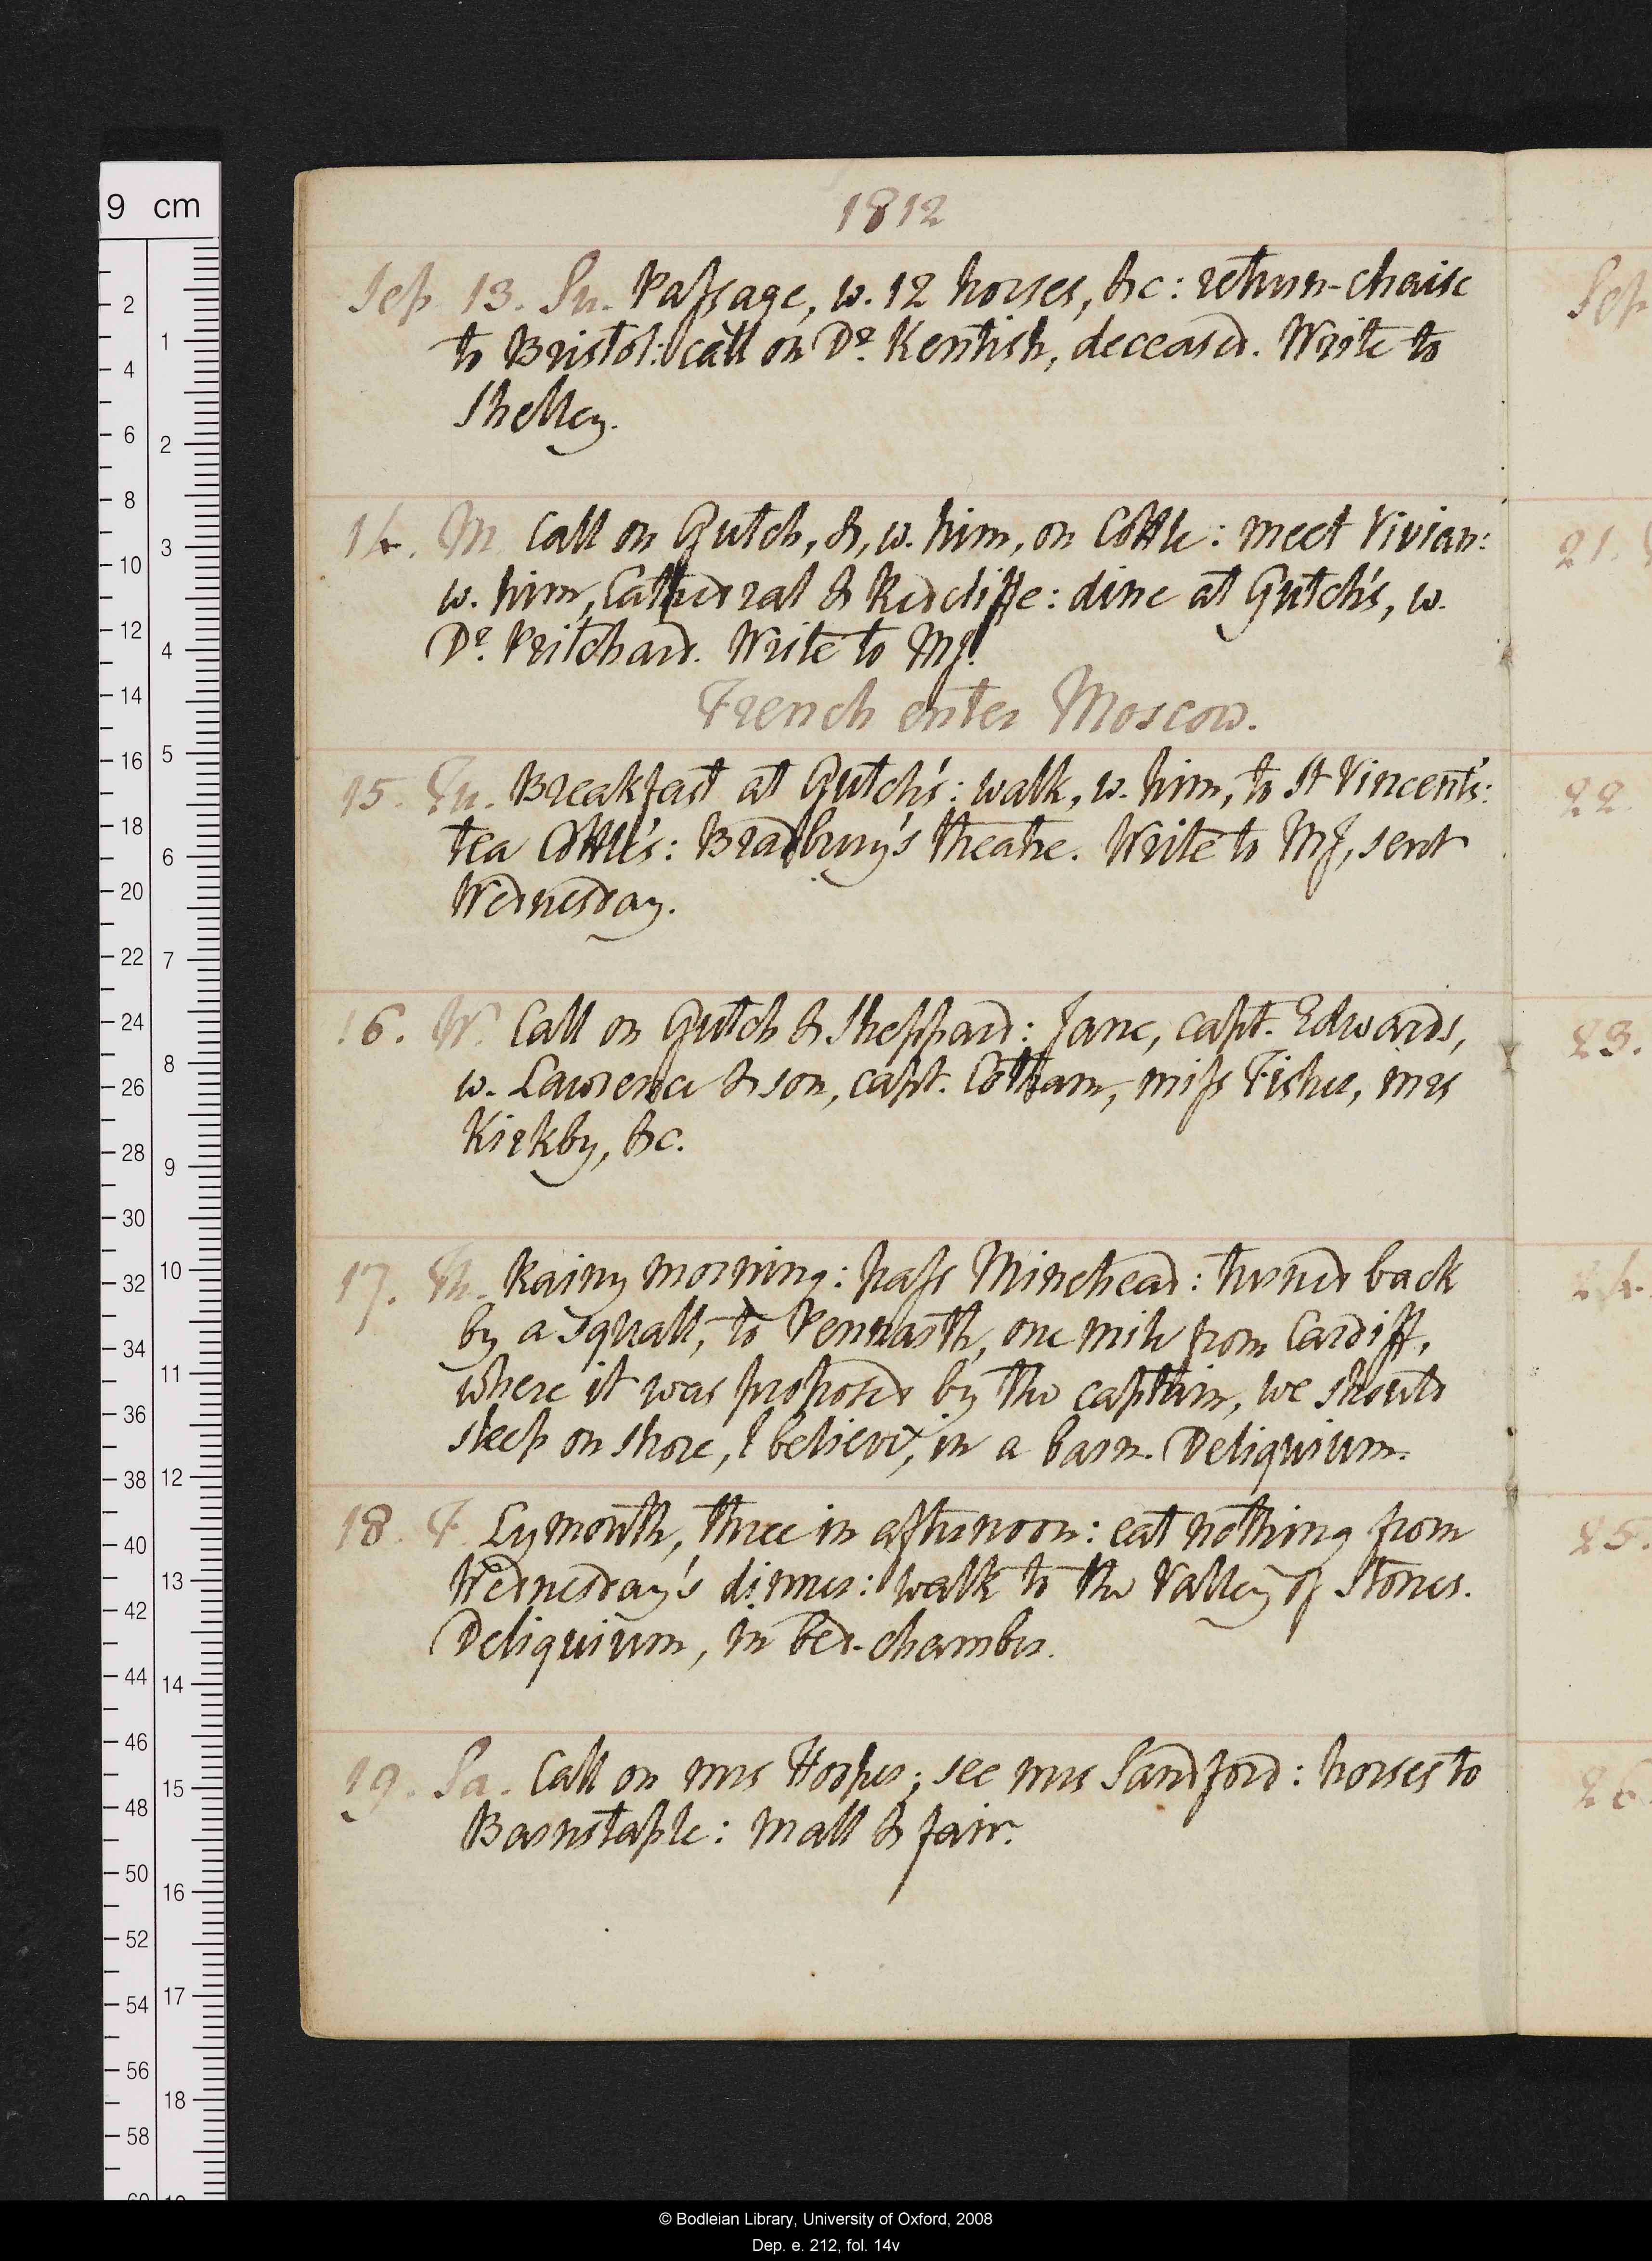 1812
Sep 13. Su. Passage, w. 12 horses, &c: return-chaise
to Bristol: call on Dr. Kentish, deceased. Write to
Shelley.
14. M. Call on Gutch, &, w. him, on Cottle: meet Vivian:
w. him, Cathedral & Redcliffe: dine at Gutch's, w.
Dr. Pritchard. Write to MJ.
French enter Moscow.
15. Tu. Breakfast at Gutch's: walk, w. him, to St Vincent's:
tea Cottle's: Bradbury's theatre. Write to MJ, sent
Wednesday.
16. W. Call on Gutch & Sheppard: Jane, capt. Edwards,
w. Lawrence & son, capt. Cottam, miss Fisher, mrs
Kirkby, &c.
17. Th. Rainy morning: pass Minehead: turned back
by a squall, to Pennarth, one mile from Cardiff,
where it was proposed by the captain, we should
sleep on shore, I believe, in a barn. Deliquium.
18. F. Lymouth, three in afternoon: eat nothing from
Wednesday's dinner: walk to the Valley of Stones.
Deliquium, in bed-chamber.
19. Sa. Call on mrs Hooper; see mrs Sandford: horses to
Barnstaple: mall & fair.
Sep
21.
22.
23.
24.
25.
26
9 cm
2
4
6
8
10
12
14
16
18
20
22
24
26
28
30
32
34
36
38
40
42
44
46
48
50
52
54
56
58
1
2
3
4
5
6
7
8
9
10
11
12
13
14
15
16
17
18
© Bodleian Library, University of Oxford, 2008
Dep. e. 212, fol. 14v